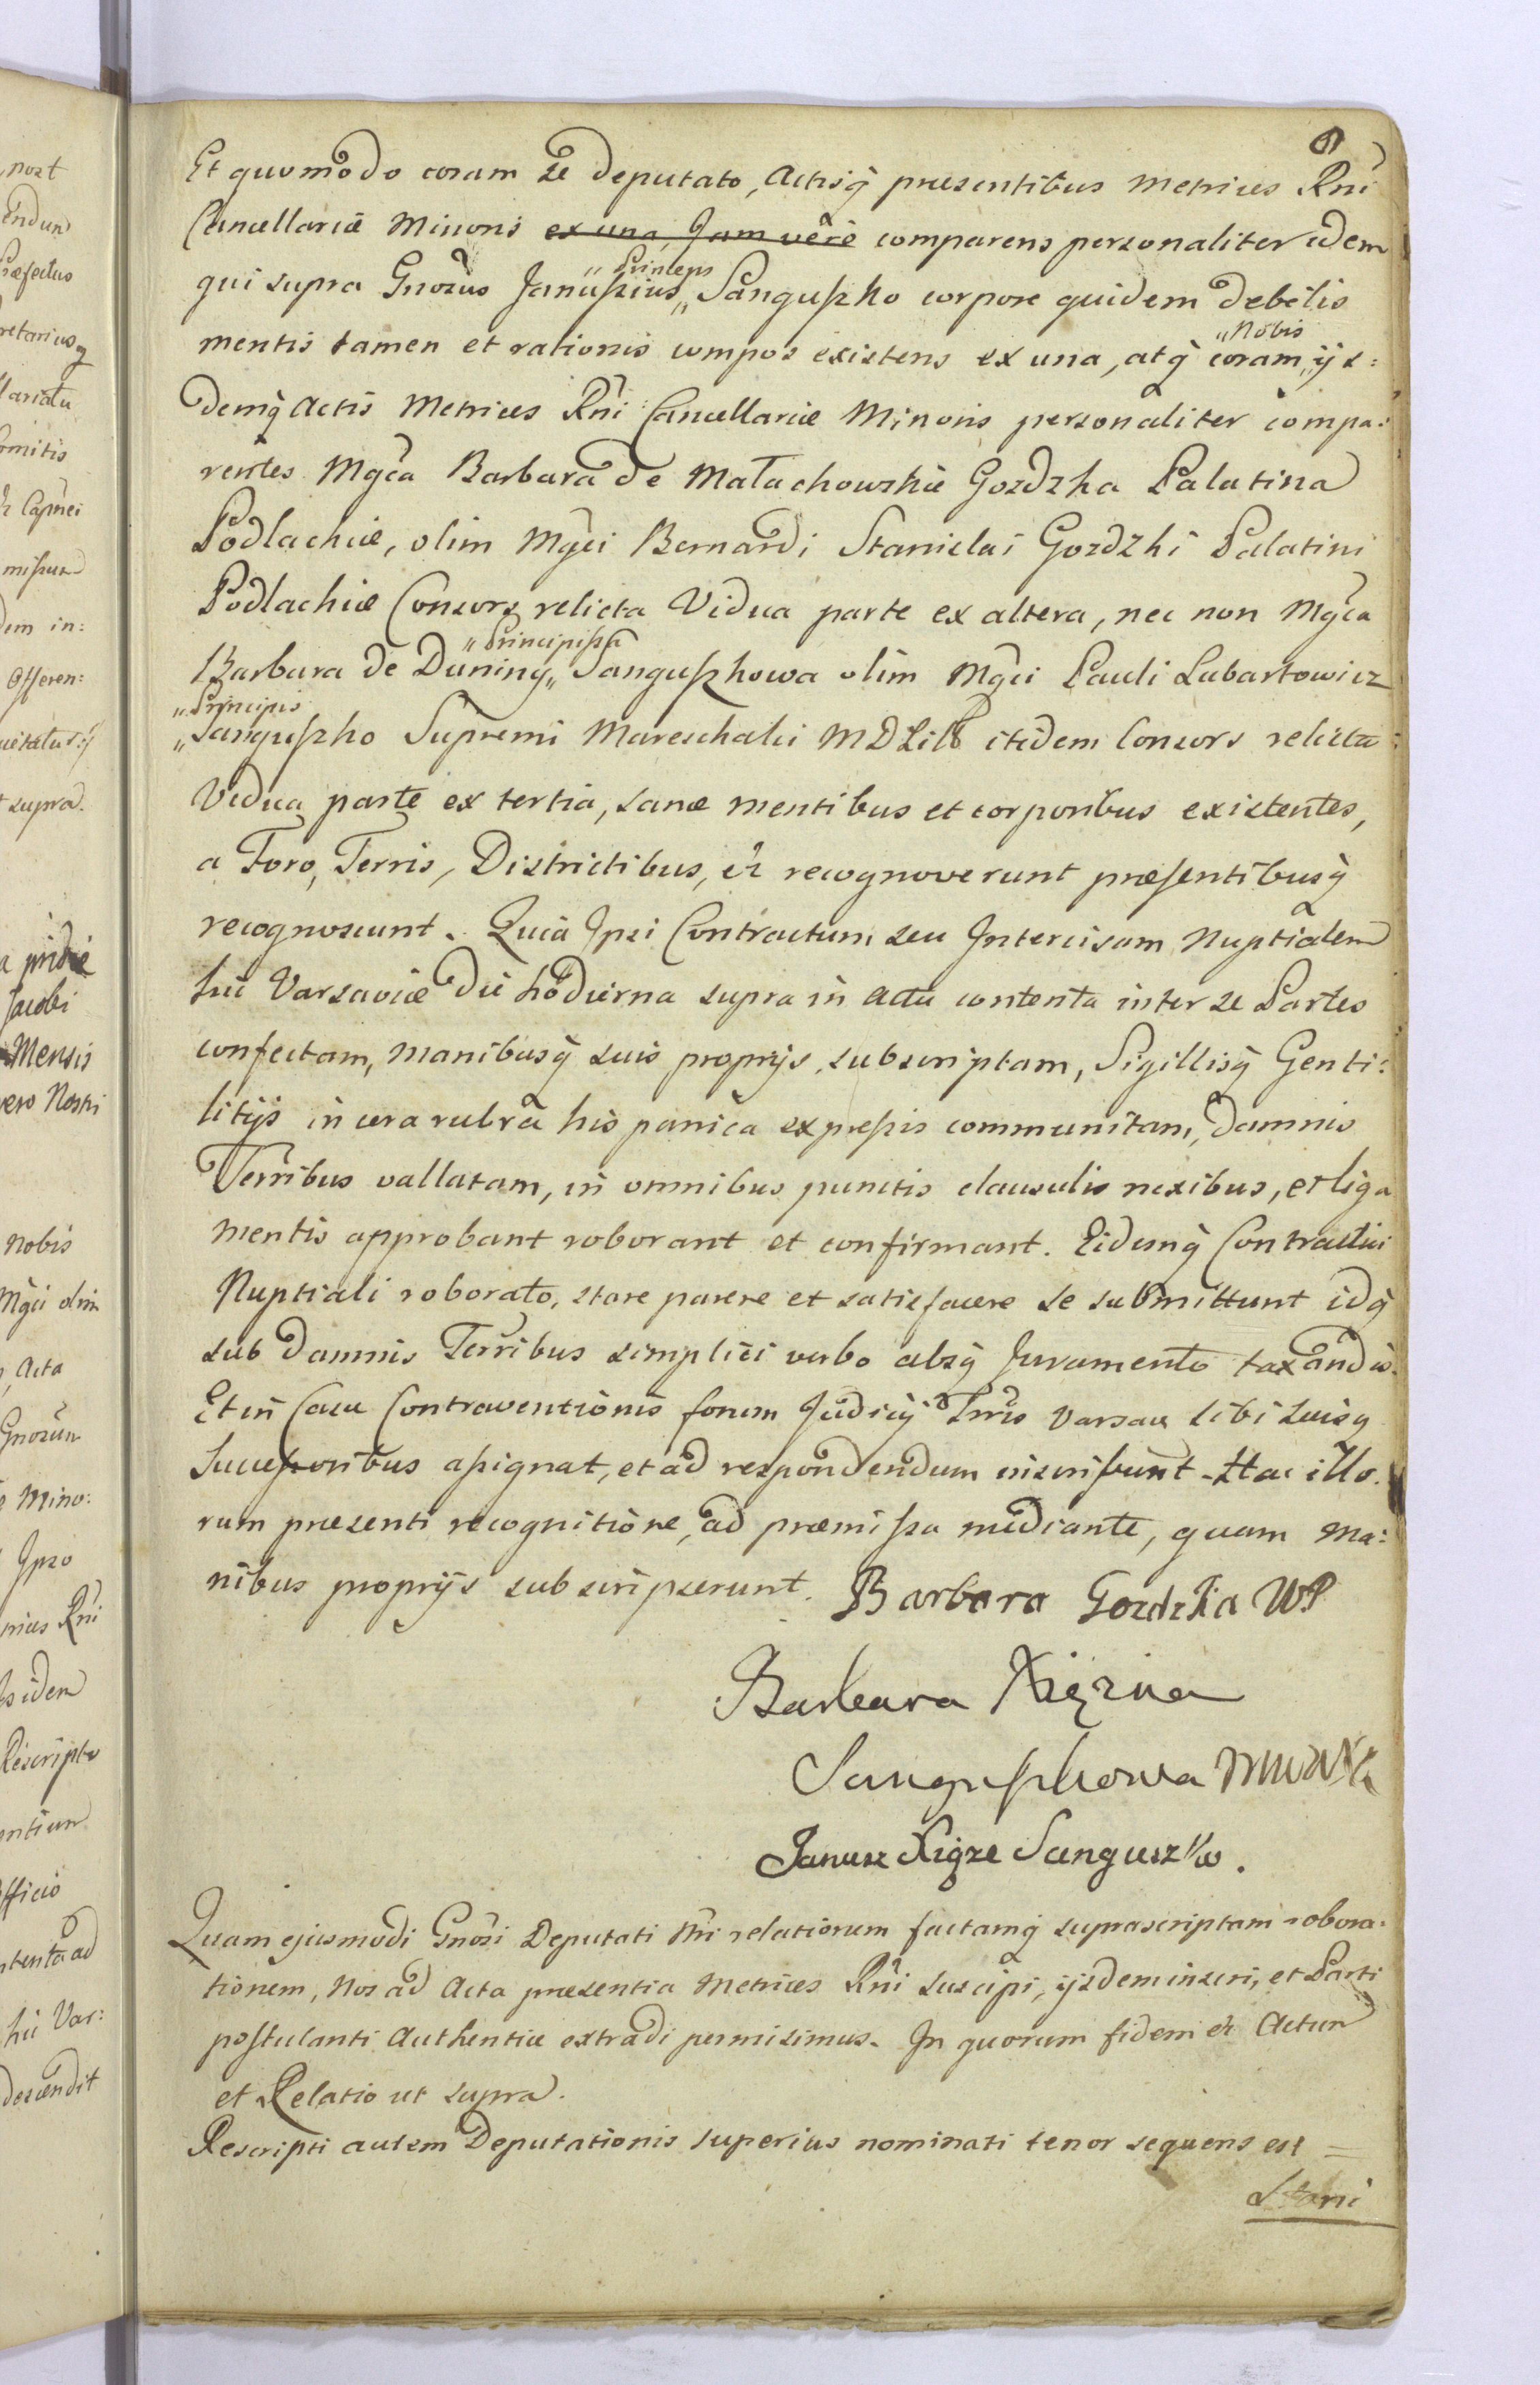 nost
Et quomodo coram se Deputato, Actisq̃ præsentibus Metrices Rñi
Cancellariæ Minoris ex una, Jam verè comparens personaliter idem
„Princeps
qui supra Gnosus Januszius „ Sanguszko corpore quidem debilis
„Nobis
mentis tamen et rationis compos existens ex una, atq̃ coram „ ijs:
demq̃ Actis Metrices Rñi Cancellariæ Minoris personaliter compa:
rentes Mgca Barbara de Małachowskie Gozdzka Palatina
Podlachiæ, olim Mgci Bernardi Stanislai Gozdzki Palatini
Podlachiæ Consors relicta Vidua parte ex altera, nec non Mgca
„Principissa
Barbara de Duniny „ Sanguszkowa olim Mgci Pauli Lubartowicz
„Principis
„Sanguszko Supremi Mareschalci MDLitt itidem Consors relicta
Vidua parte ex tertia, sanæ mentibus et corporibus existentes,
a Foro, Terris, Districtibus, et recognoverunt præsentibusq̃
recognoscunt. Quia Ipsi Contractum seu Intercisam Nuptialem
hic Varsaviæ die hodierna supra in actu contenta inter se Partes
confectam, manibusq̃ suis proprijs subscriptam, Sigillisq̃ Genti:
litijs in cera rubra hispanica expressis communitam, damnis
Terribus vallatam, in omnibus punctis clausulis nexibus, et liga
mentis approbant roborant et confirmant. Eidemq̃ Contractui
Nuptiali roborato, stare parere et satisfacere se submittunt idq̃
sub damnis Terribus simplici verbo absq̃ Juramento taxandis.
Et in Casu Contraventionis forum Judicij Trris Varsav sibi Suisq
Successoribus assignat, et ad respondendum inscribunt. Hac illo.
rum præsenti recognitione, ad præmissa mediante, quam ma:
nibus proprijs subscripserunt. Barbara Gozdzka WP
Barbara Xiężna
Sanguszkowa
Janusz Xiąże Sanguszko.
Quam ejusmodi Gnosi Deputati Nri relationem factamq̃ suprascriptam robora:
tionem, Nos ad Acta præsentia Metrices Rñi suscipi, ijsdem inseri, et Parti
postulanti Authentice extradi permisimus. In quorum fidem et Actum
et Relatio ut supra.
Rescripti autem Deputationis superius nominati tenor sequens est =
Stani